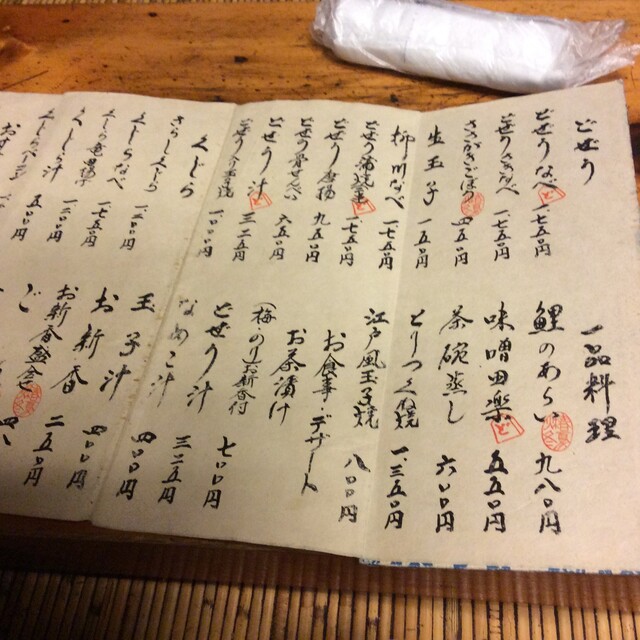 どぜう
どぜうなべ 一七五〇円
どぜうさきなべ 一七五〇円
ささがきごぼう 四五〇円
生玉子 一五〇円
柳川なべ 一七五〇円
どぜう蒲焼 一七五〇円
どぜう唐揚 九五〇円
どぜう骨せんべい 六五〇円
どぜう汁 三二五円
どぜう 一〇〇〇円
くじら
さらしくじら
くじらなべ 一七五〇円
くじら竜田揚げ
くじら汁 五〇〇円
一品料理
鯉のあらい 九八〇円
味噌田楽 五五〇円
茶碗蒸し 六〇〇円
とりつくね焼 一、三五〇円
江戸風玉子焼 八〇〇円
お食事 デザート
お茶漬け
(梅・のり)お新香付 七〇〇円
どぜう汁 三二五円
なめこ汁 四〇〇円
玉子汁 四〇〇円
お新香 二五〇円
お新香盛合せ
ご